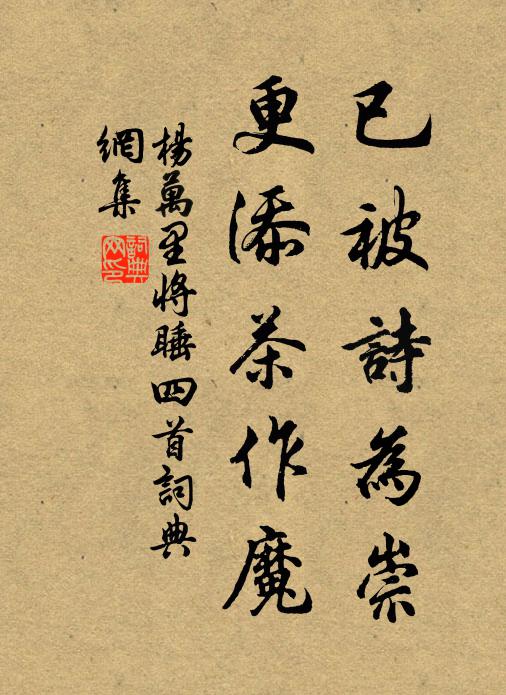 已被詩為祟
更添茶作魔
楊萬里將睡四首詞典
網集
詞典
网印